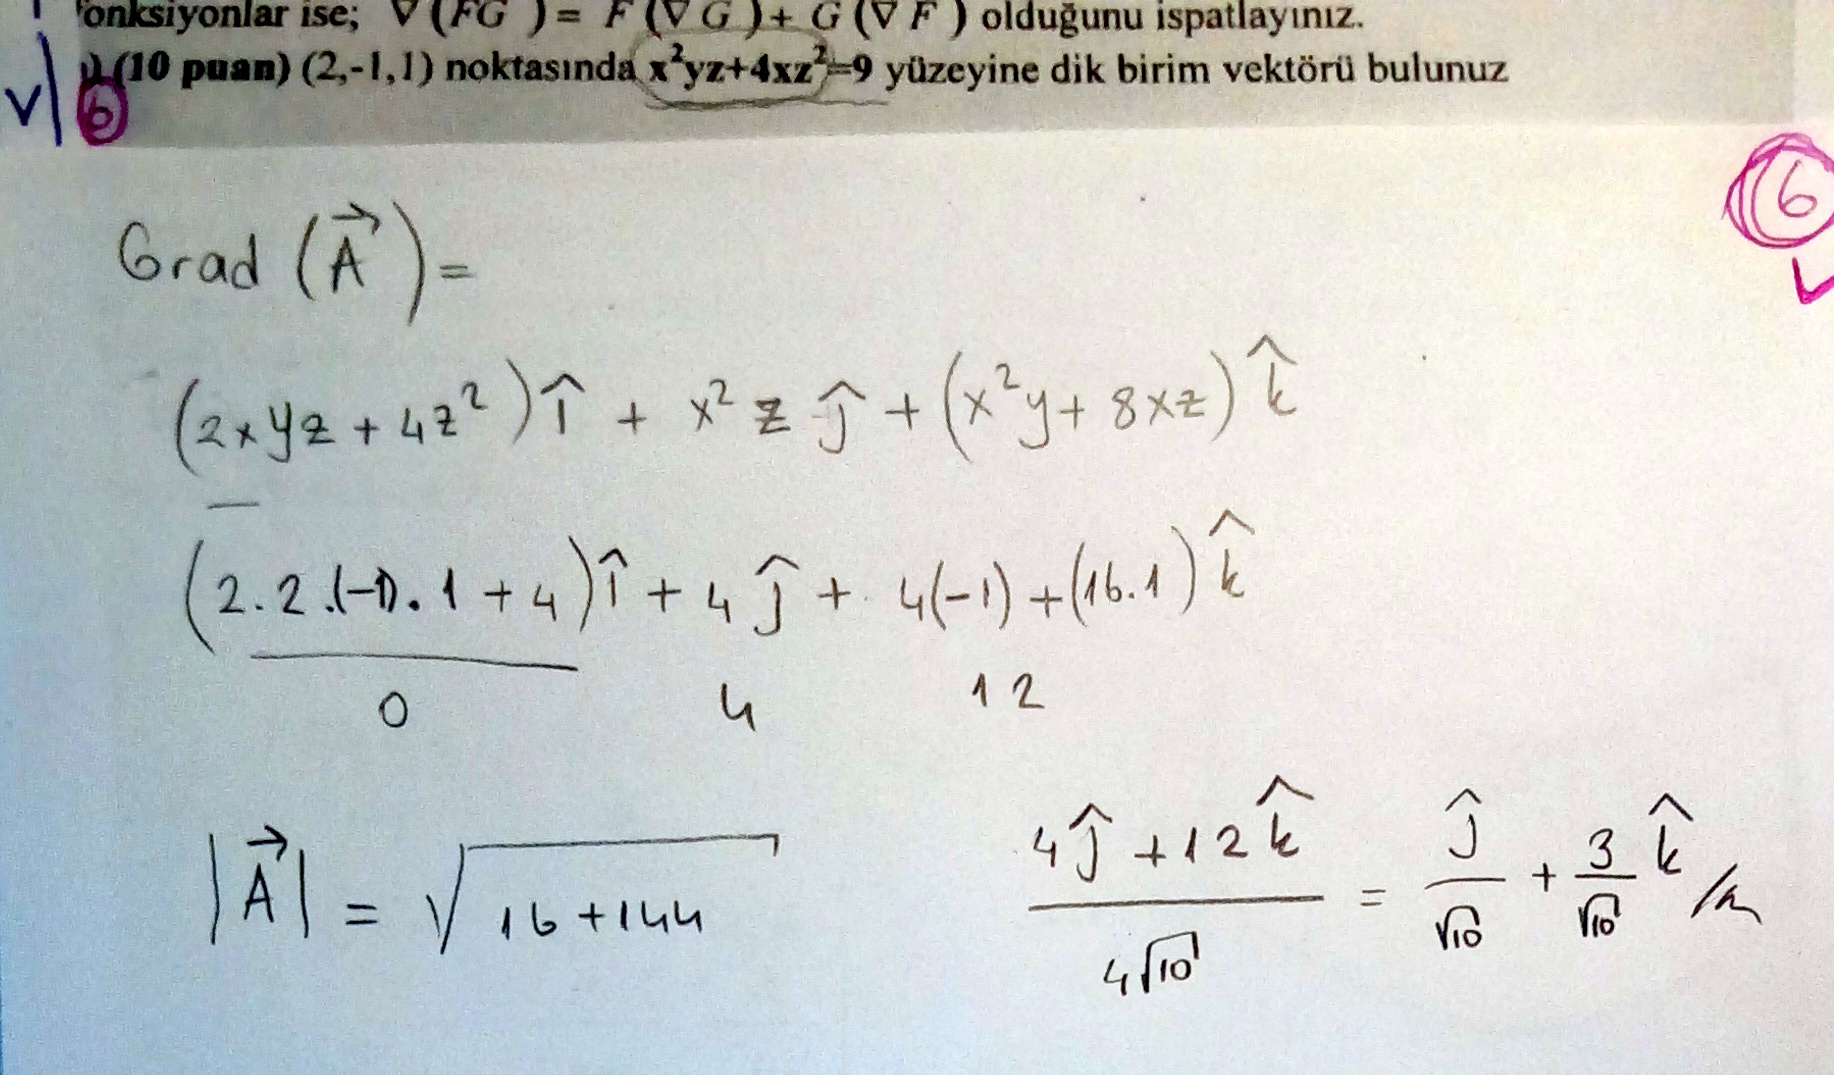 fonksiyonlar ise; ∇(FG) = F(∇G) + G(∇F) olduğunu ispatlayınız.
(10 puan) (2,-1,1) noktasında x²yz+4xz²=9 yüzeyine dik birim vektörü bulunuz
V) 6
6
Grad (A⃗) =
(2xyz + 4z²) î + x²z ĵ + (x²y + 8xz) k̂
(2.2.(-1).1 + 4) î + 4 ĵ + 4(-1) + (16.1) k̂
0 4 12
|A⃗| = √(16+144)
(4ĵ + 12k̂)/(4√10) = ĵ/√10 + 3/√10 k̂